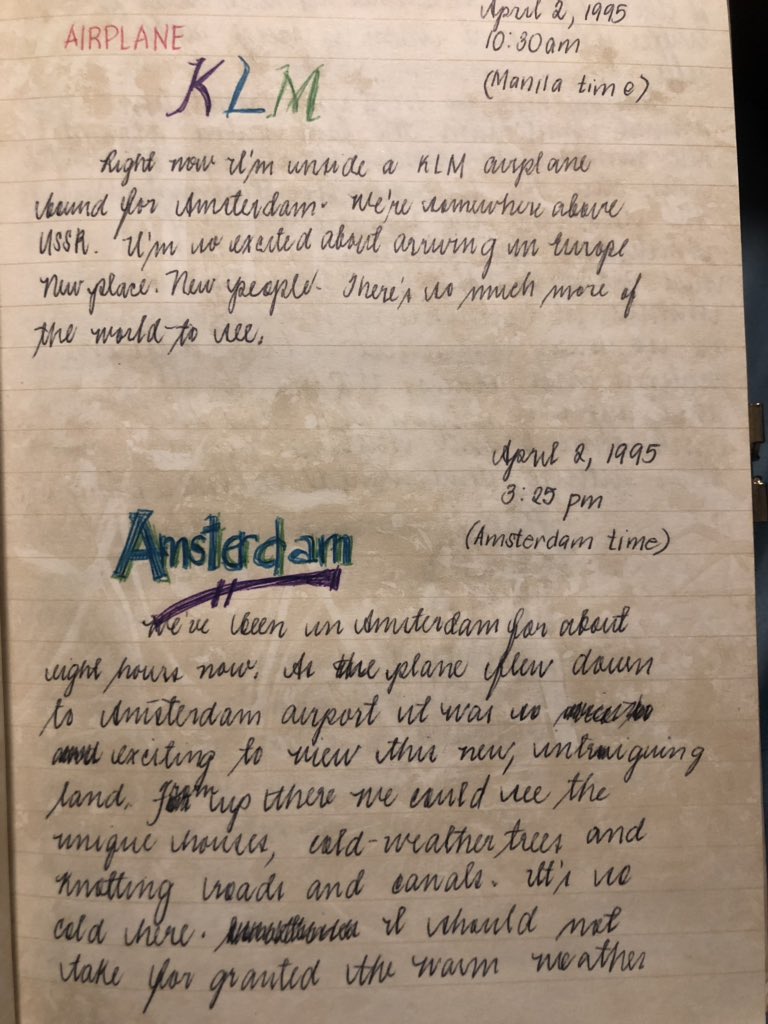 April 2, 1995
AIRPLANE
10:30am
KLM
(Manila time)
Right now I'm inside a KLM airplane
bound for Amsterdam. We're somewhere above
USSR. I'm so excited about arriving in Europe
New place. New people. There's so much more of
the world to see.
April 2, 1995
3:25 pm
Amsterdam
(Amsterdam time)
We've been in Amsterdam for about
eight hours now. As the plane flew down
to Amsterdam airport it was so
exciting to view this new, intruiguing
land. From up there we could see the
unique houses, cold-weather trees and
knotting roads and canals. It's so
cold here. I should not
take for granted the warm weather